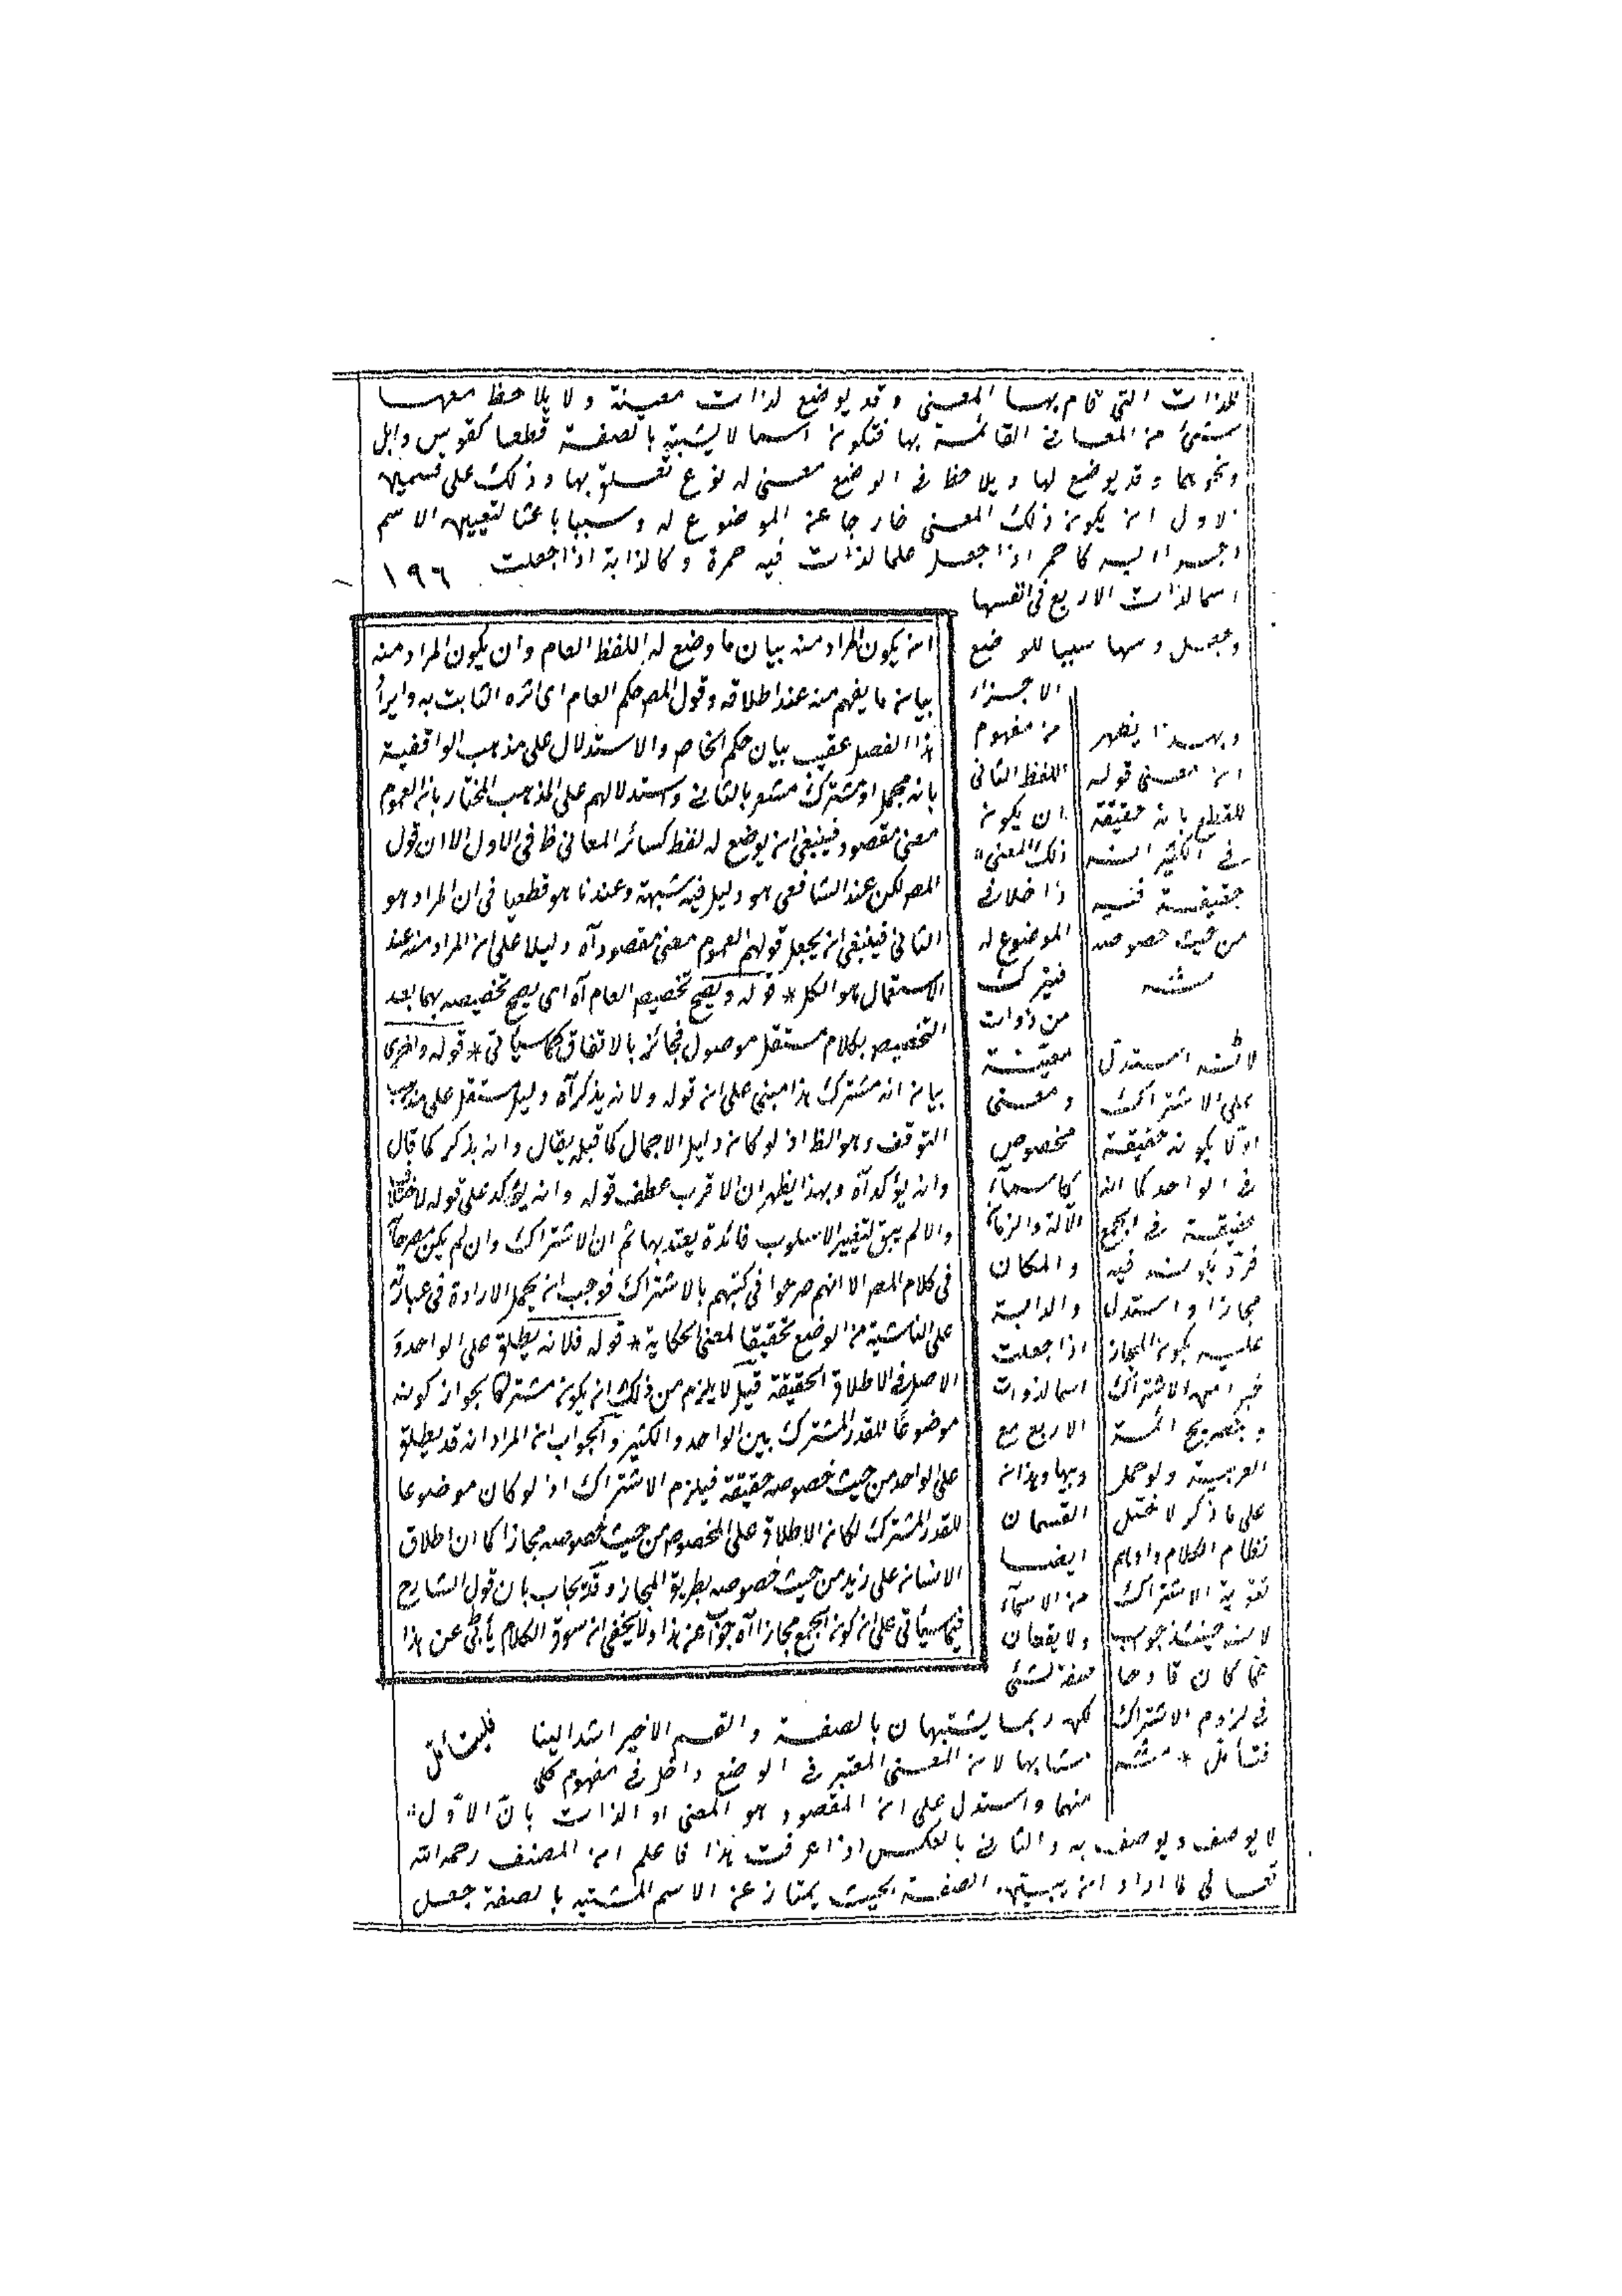 للذات التى قام بها المعنى وقد يوضع لذات معينة ولا يلاحظ معها
شئ من المعانى القائمة بها فتكون اسما لا يشتبه بالصفة قطعا كفرس وابل
ونحوهما وقد يوضع لها ويلاحظ فى الوضع معنى له نوع تعلق بها وذلك على قسمين
الاول ان يكون ذلك المعنى خارجا عن الموضوع له وسببا باعثا لتعيين الاسم
كاحمر اذا جعل علما لذات فيه حمرة وكالدابة اذا جعلت
١٩٦
اسما لذات الاربع فى انفسها
وجعل سببا للوضع
الاجزاء
من مفهوم
اللفظ الثانى
ان يكون
ذلك المعنى
داخلا فى
الموضوع له
فيتركب
من ذوات
معينة
ومعنى
مخصوص
كاسماء
الآلة والزمان
والمكان
والدابة
اذا جعلت
اسما لذوات
الاربع مع
دبيبها وهذان
القسمان
ايضا
من الاسماء
ولا يقعان
صفة لشئ
لكن ربما يشتبهان بالصفة والقسم الاخير اشد التباسا
لان المعنى المعتبر فى الوضع داخل فى مفهوم كلى
منهما واستدل على ان المقصود هو المعنى او الذات بان الاول
لا يوصف ويوصف به والثانى بالعكس اذا عرفت هذا فاعلم ان المصنف رحمه الله
تعالى لما اراد ان الصفة بحيث يمتاز عن الاسم المشتبه بالصفة جعل
ان يكون المراد منه بيان ما وضع له اللفظ العام وان يكون المراد منه
بيان ما يفهم منه عند اطلاقه وقول المص حكم العام اى اثره الثابت به وايراد
هذا الفصل عقيب بيان حكم الخاص والاستدلال على مذهب الواقفية
بانه مجمل او مشترك مشعر بالثانى واستدلالهم على المذهب المختار بان العموم
معنى مقصود فينبغى ان يوضع له لفظ كسائر المعانى ظ فى الاول الا ان قول
المص لكن عند الشافعى هو دليل فيه شبهة وعندنا هو قطعيا فى ان المراد هو
الثانى فينبغى ان يجعل قولهم العموم معنى مقصود آه دليلا على ان المراد منه عند
الاستعمال هو الكل * قوله ويصح تخصيص العام آه اى يصح تخصيصه بهما بعد
التخصيص بكلام مستقل موصول فجائز بالاتفاق كما سيأتى * قوله واخرى
بيان انه مشترك هذا مبنى على ان قوله ولانه يذكر آه دليل مستقل على مذهب
التوقف وهو الظ اذ لو كان دليل الاجمال كما قبله يقال وانه يذكر كما قال
وانه يؤكد آه وبهذا يظهر ان الاقرب عطف قوله وانه يؤكد على قوله
والا لم يبق لتغيير الاسلوب فائدة يعتد بها ثم ان الاشتراك وان لم يكن مصرحا
فى كلام المص الا انهم صرحوا فى كتبهم بالاشتراك فوجب ان يحمل الارادة فى عبارته
على الناشئة من الوضع تحقيقا لمعنى الحكاية * قوله فلانه يطلق على الواحد و
الاصل فى الاطلاق الحقيقة قيل لا يلزم من ذلك ان يكون مشتركا بجواز كونه
موضوعا للقدر المشترك بين الواحد والكثير والجواب ان المراد انه قد يطلق
على الواحد من حيث خصوصه حقيقة فيلزم الاشتراك اذ لو كان موضوعا
للقدر المشترك لكان الاطلاق على المخصوص من حيث خصوصه مجازا كما ان اطلاق
الانسان على زيد من حيث خصوصه بطريق المجاز وقد يجاب بان قول الشارح
فيما سيأتى على ان كون الجمع مجازا آه جواب عن هذا ولا يخفى ان سوق الكلام يأبى عن هذا
فليتأمل
وبهذا يظهر
ان معنى قوله
للقطع بانه حقيقة
فى الكثير انه
حقيقة فيه
من حيث خصوصه
منه
لانه استدل
على الاشتراك
اولا بكونه حقيقة
فى الواحد كما انه
حقيقة فى الجمع
فرد بانه فيه
مجازا واستدل
عليه بكون المجاز
خيرا من الاشتراك
وبتصريح ائمة
العربية ولو حمل
على ما ذكر لاختل
نظام الكلام واوهم
تقوية الاشتراك
لانه حينئذ جواب
عما كان قادحا
فى لزوم الاشتراك
فتأمل * منه